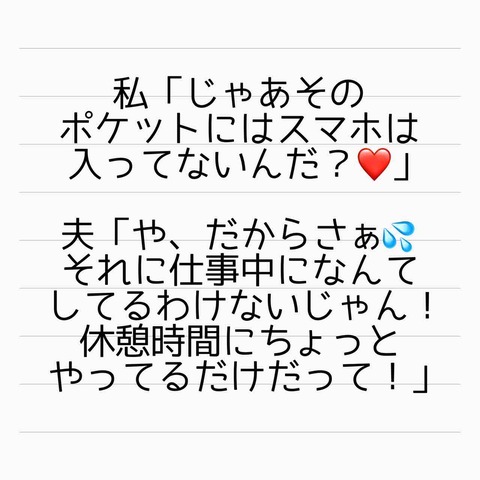 私「じゃあその
ポケットにはスマホは
入ってないんだ？❤️」
夫「や、だからさぁ💦
それに仕事中になんて
してるわけないじゃん！
休憩時間にちょっと
やってるだけだって！」